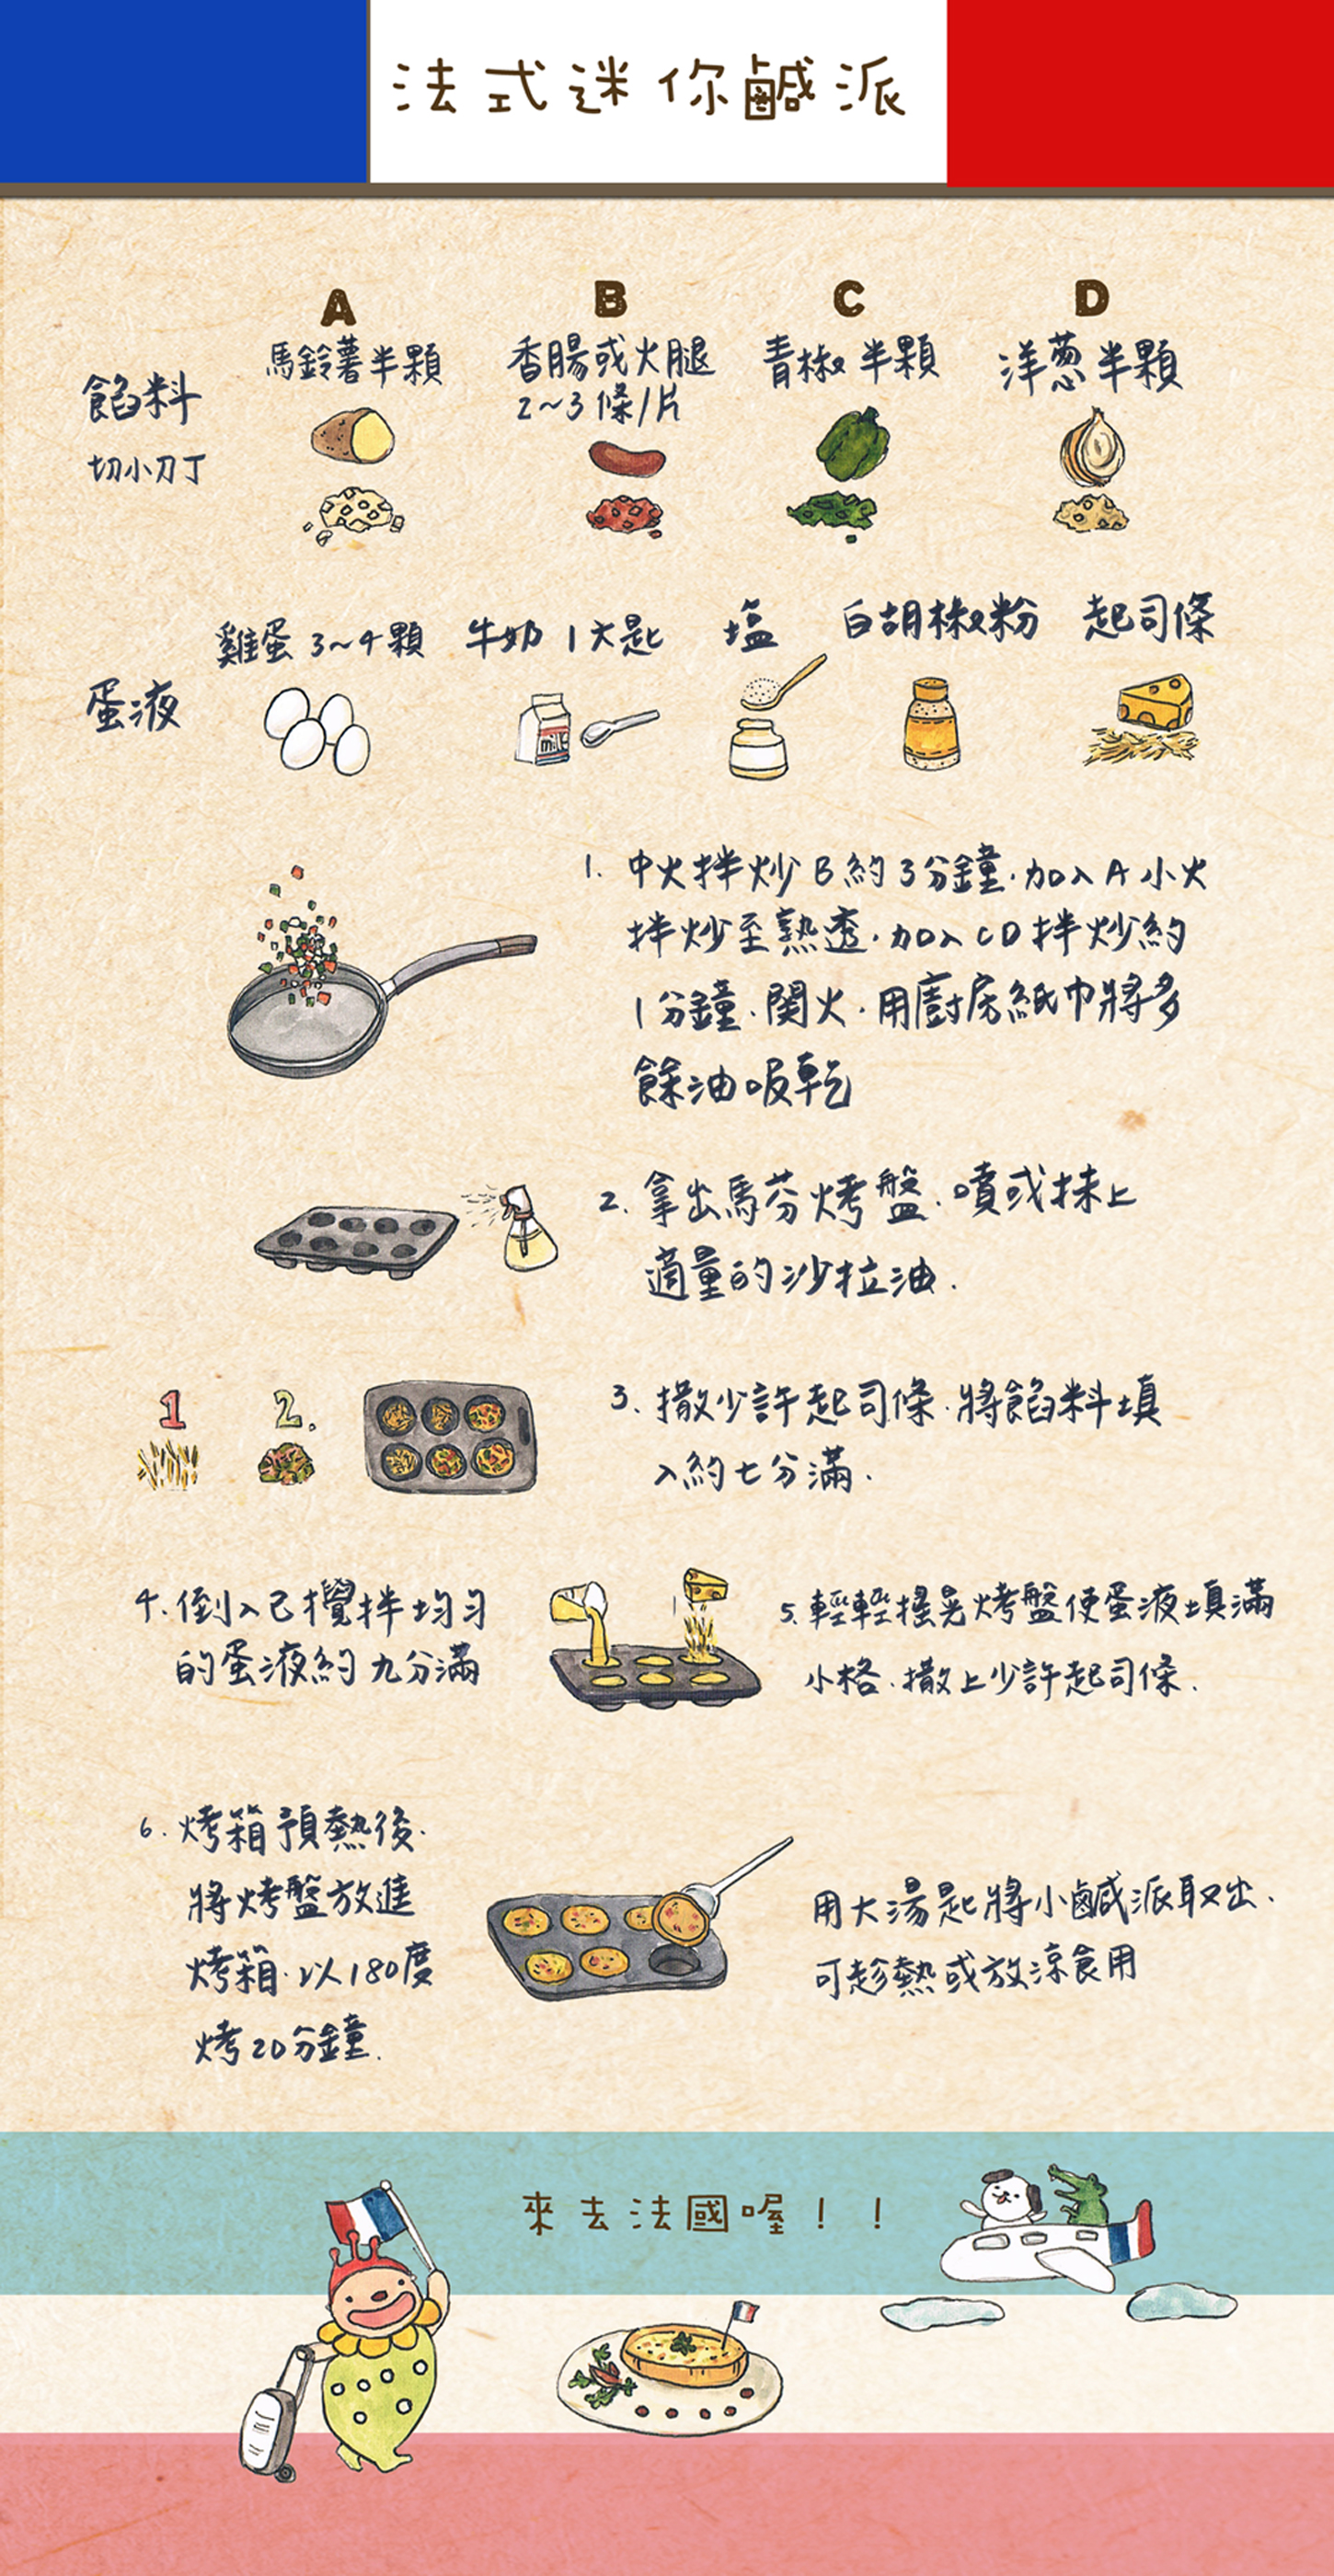 法式迷你鹹派
A
B
C
D
餡料
切小刀丁
馬鈴薯半顆
香腸或火腿
2~3條/片
青椒半顆
洋葱半顆
蛋液
雞蛋3~4顆
牛奶1大匙
塩
白胡椒粉
起司條
milk
1. 中火拌炒B約3分鐘.加入A小火
拌炒至熟透.加入CD拌炒約
1分鐘.関火.用廚房紙巾將多
餘油吸乾
2. 拿出馬芬烤盤.噴或抹上
適量的沙拉油.
1
2.
3. 撒少許起司條.將餡料填
入約七分滿.
4. 倒入已攪拌均勻
的蛋液約九分滿
5. 輕輕搖晃烤盤使蛋液填滿
小格.撒上少許起司條.
6. 烤箱預熱後.
將烤盤放進
烤箱.以180度
烤20分鐘.
用大湯匙將小鹹派取出.
可趁熱或放涼食用
來去法國喔！！